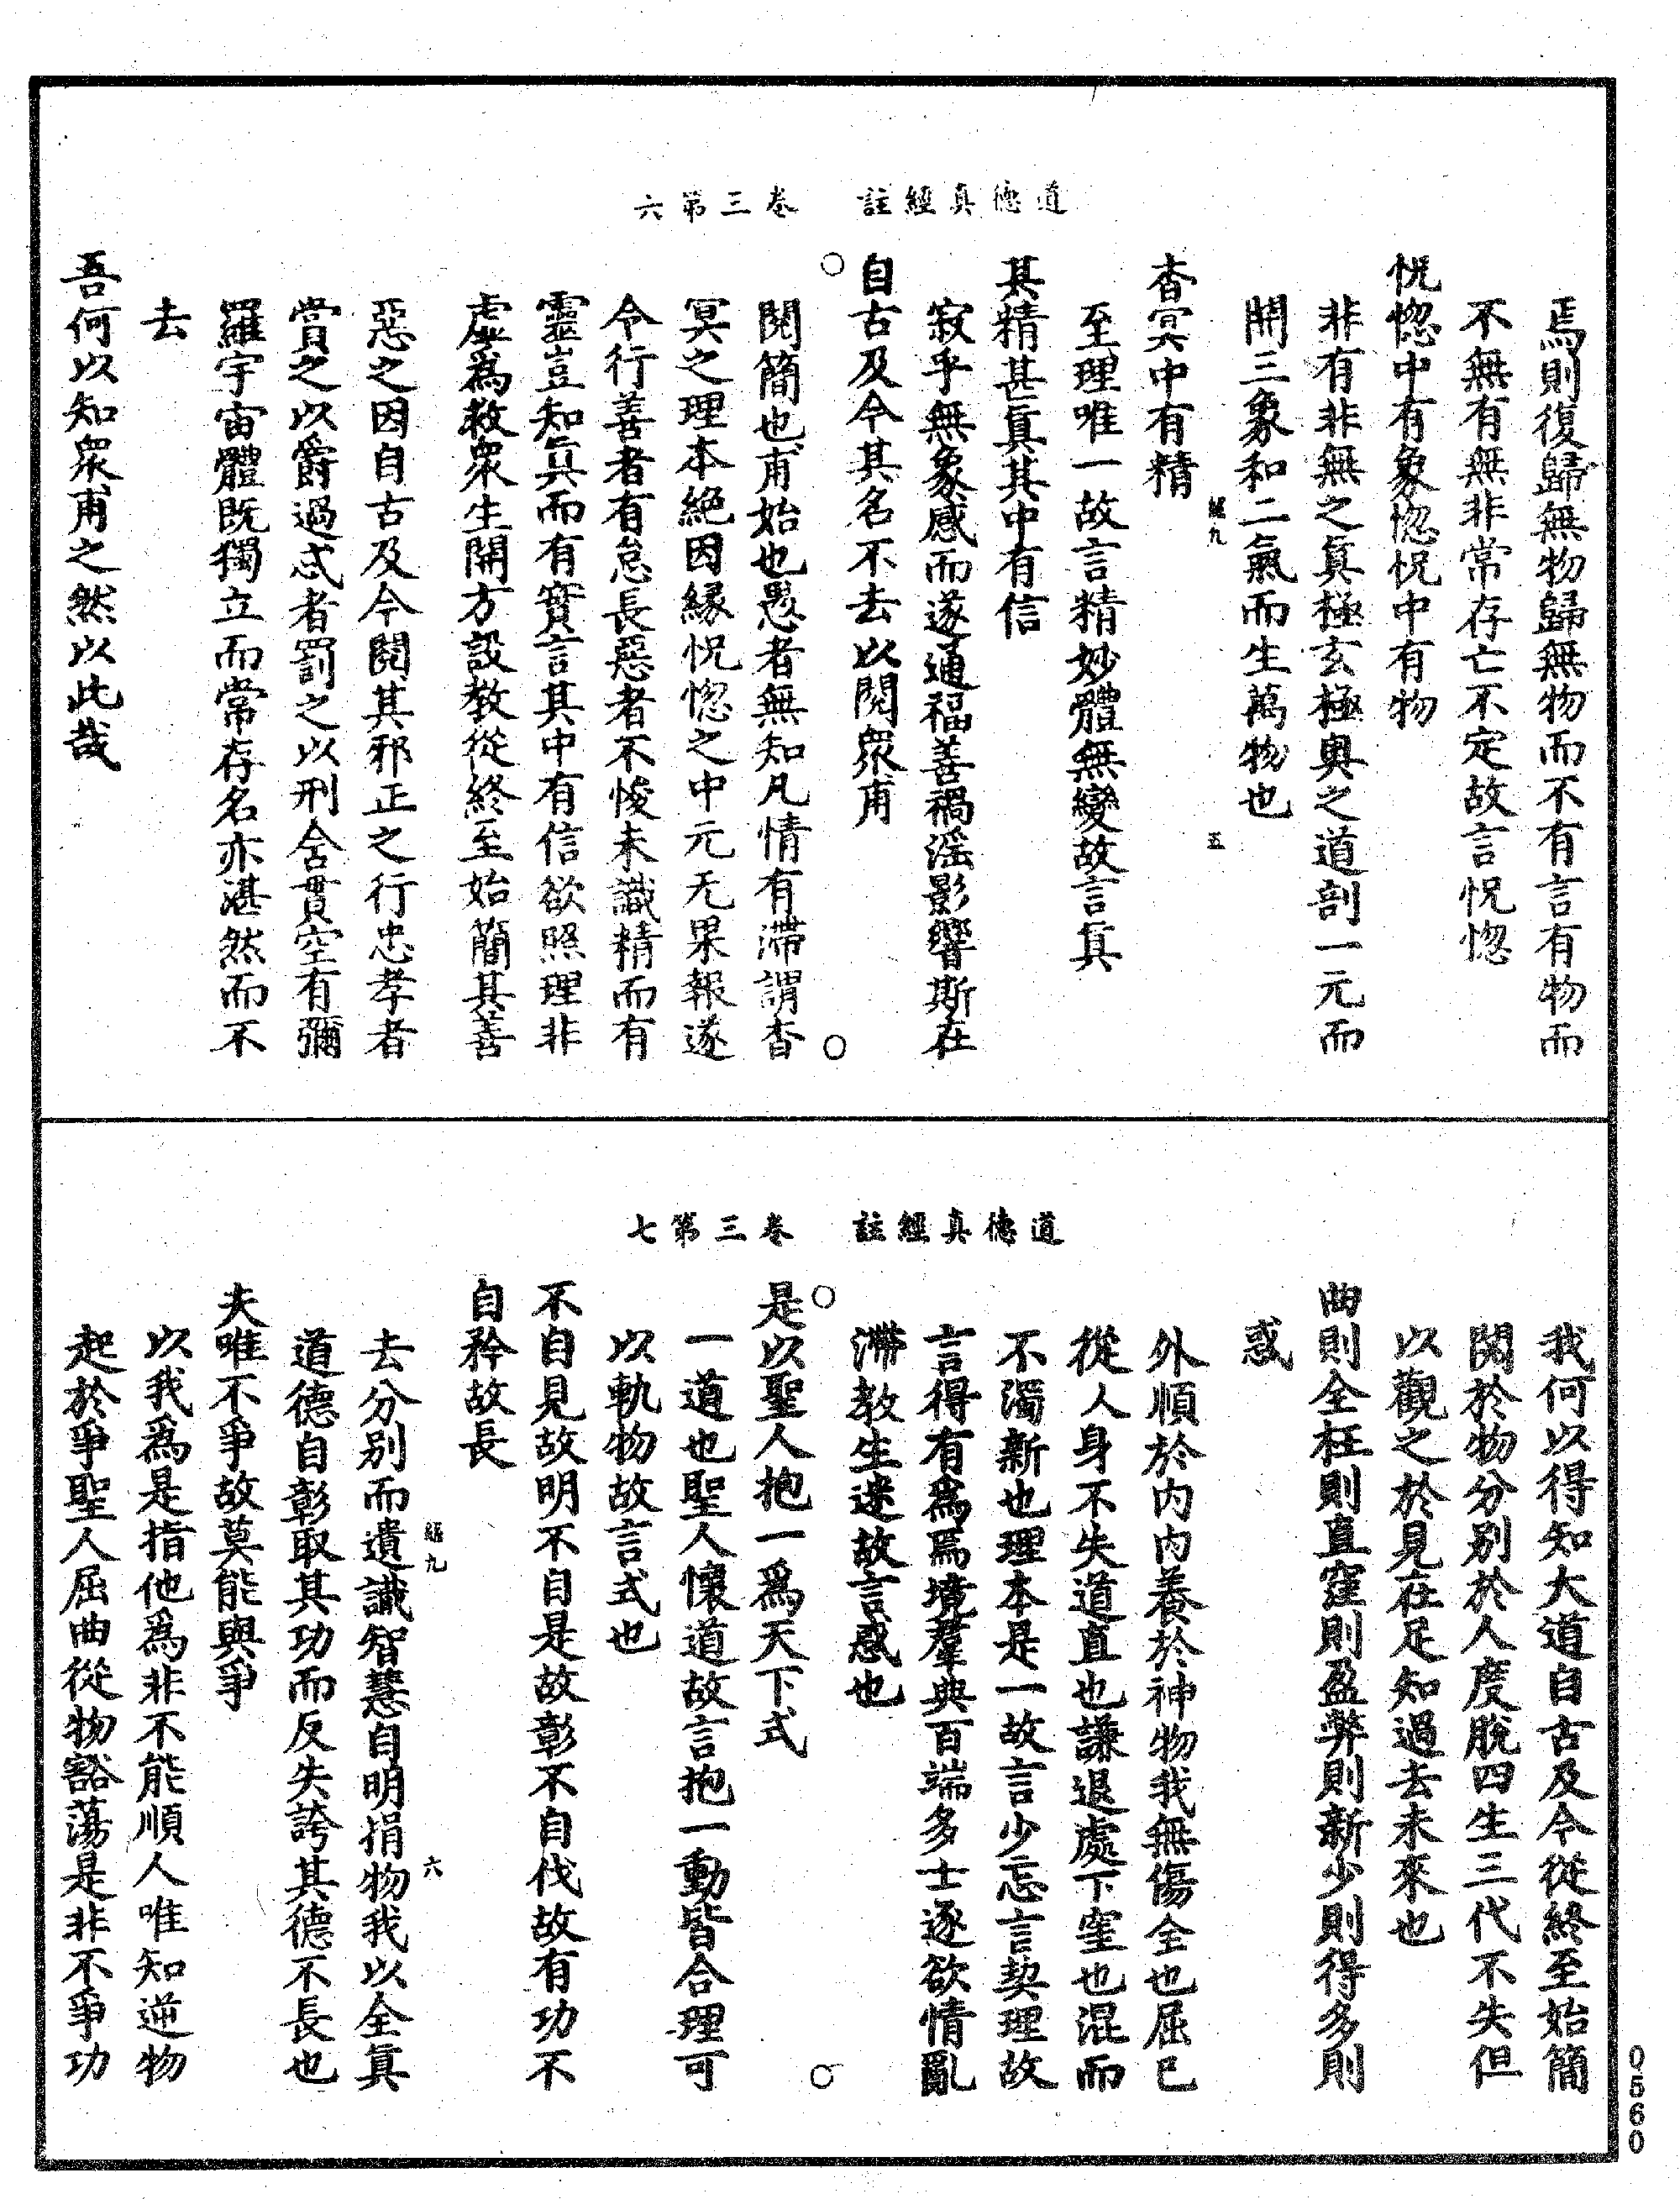 道德真經註　卷三第六
焉則復歸無物歸無物而不有言有物而
不無有無非常存亡不定故言怳惚
怳惚中有象惚怳中有物
非有非無之真極玄極奧之道剖一元而
開三象和二氣而生萬物也
杳冥中有精
五
至理唯一故言精妙體無變故言真
其精甚真其中有信
寂乎無象感而遂通福善禍淫影響斯在
自古及今其名不去以閱衆甫
閱簡也甫始也愚者無知凡情有滯謂杳
冥之理本絕因緣怳惚之中元无果報遂
令行善者有怠長惡者不悛未識精而有
靈豈知真而有實言其中有信欲照理非
虛爲救衆生開方設教從終至始簡其善
惡之因自古及今閱其邪正之行忠孝者
賞之以爵過忒者罰之以刑含貫空有彌
羅宇宙體既獨立而常存名亦湛然而不
去
吾何以知衆甫之然以此哉
道德真經註　卷三第七
我何以得知大道自古及今從終至始簡
閱於物分別於人度脫四生三代不失但
以觀之於見在足知過去未來也
曲則全枉則直窪則盈弊則新少則得多則
惑
外順於內內養於神物我無傷全也屈己
從人身不失道直也謙退處下窪也混而
不濁新也理本是一故言少忘言契理故
言得有爲爲境羣典百端多士逐欲情亂
滯教生迷故言惑也
是以聖人抱一爲天下式
一道也聖人懷道故言抱一動皆合理可
以軌物故言式也
不自見故明不自是故彰不自伐故有功不
自矜故長
六
去分別而遺識智慧自明捐物我以全真
道德自彰取其功而反失誇其德不長也
夫唯不爭故莫能與爭
以我爲是指他爲非不能順人唯知逆物
起於爭聖人屈曲從物豁蕩是非不爭功
0560